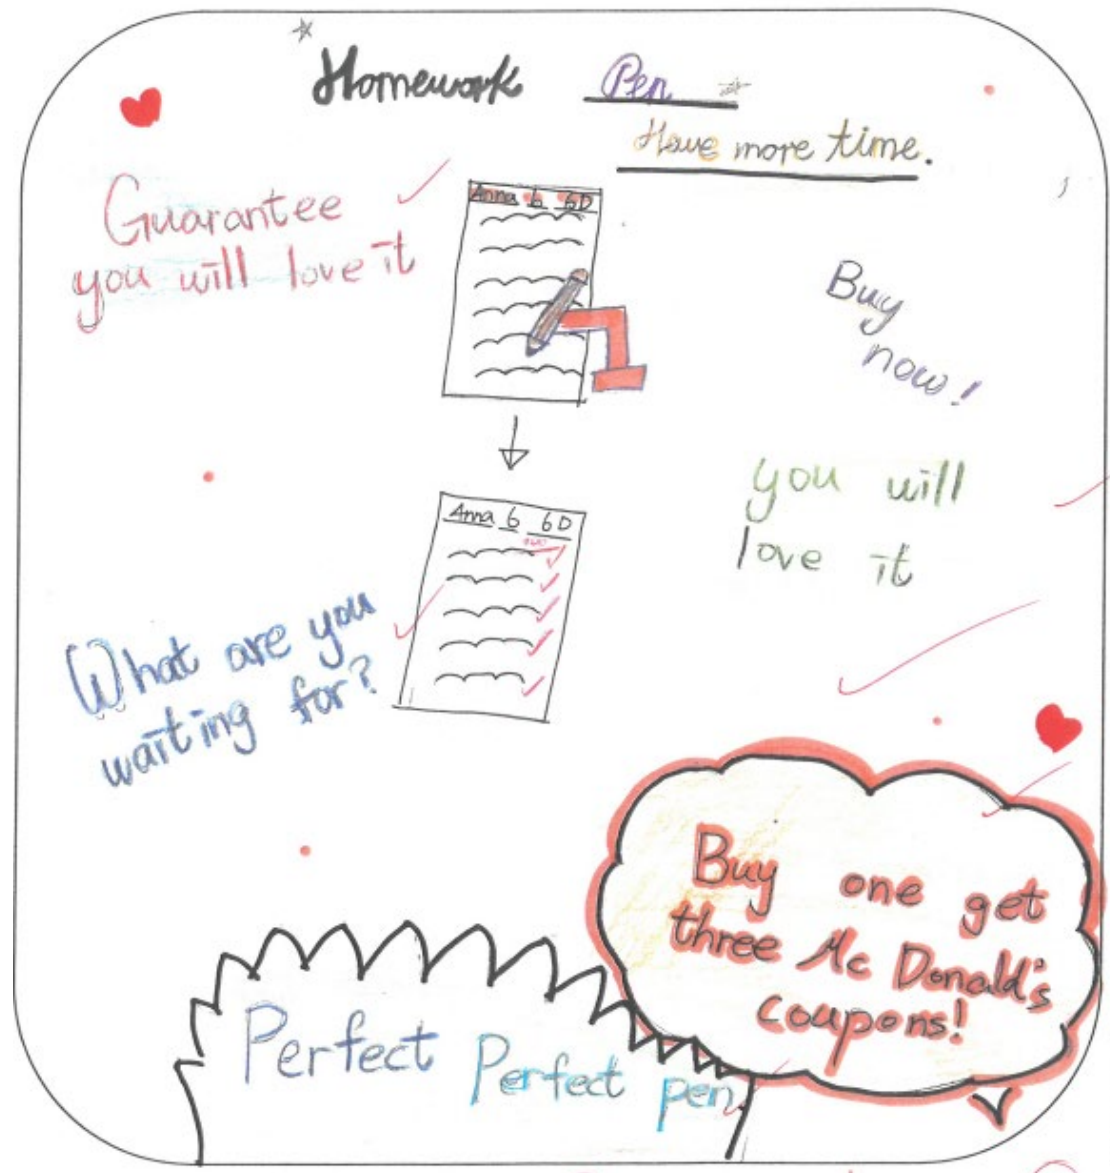 Homework Pen
Have more time.
Guarantee
you will love it
Anna 6 6D
Buy
now!
you will
love it
Anna 6 6D
What are you
waiting for?
Buy one get
three Mc Donald's
coupons!
Perfect Perfect pen